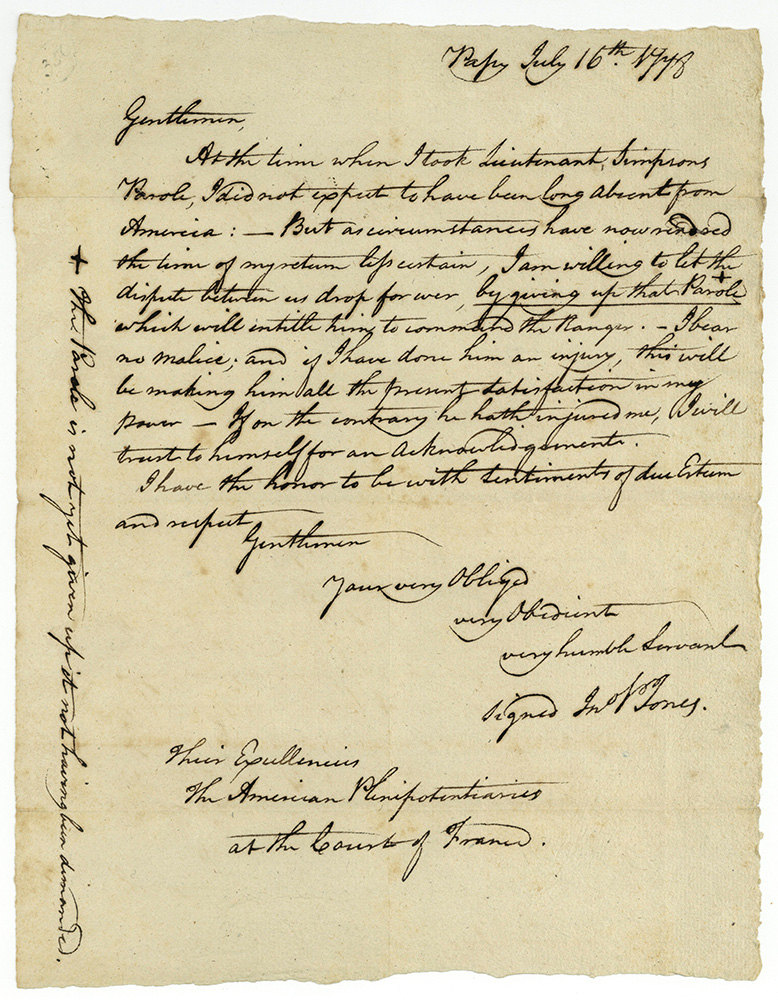 Passy July 16th 1778
Gentlemen,
At the time when I took Lieutenant Simpsons
Parole, I did not expect to have been long absent from
America: — But as circumstances have now rendered
the time of my return less certain, I am willing to let the
dispute between us drop for ever, by giving up that Parole +
which will intitle him to command the Ranger. — I bear
no malice; and if I have done him an injury, this will
be making him all the present satisfaction in my
power — If on the contrary he hath injured me, I will
trust to himself for an Acknowledgement.
I have the honor to be with sentiments of due Esteem
and respect
Gentlemen
Your very Obliged
very Obedient
very humble Servant
signed Jno P Jones.
Their Excellencies
The American Plenipotentiaries
at the Court of France.
+ The Parole is not yet given up it not having been demanded.